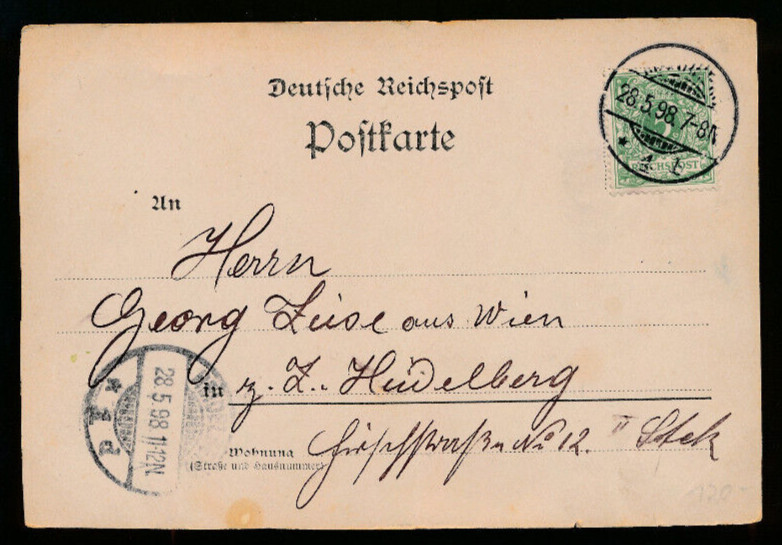 Deutsche Reichspost
Postkarte
28.5.98.7-8N
* 1 t
REICHSPOST
An
Herrn
Georg Zeise aus Wien
in z. Z. Heidelberg
Wohnung Hirschstraße No 12. II Stck
(Straße und Hausnummer)
28.5.98 11-12N
120-